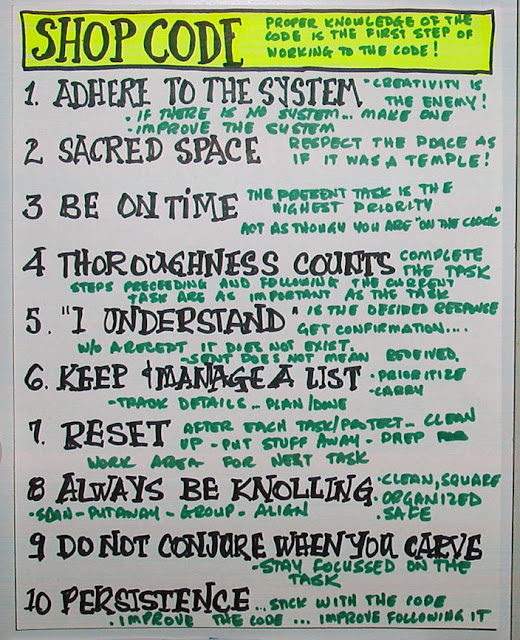 SHOP CODE
PROPER KNOWLEDGE OF THE
CODE IS THE FIRST STEP OF
WORKING TO THE CODE!
1. ADHERE TO THE SYSTEM
· CREATIVITY IS
THE ENEMY!
· IF THERE IS NO SYSTEM... MAKE ONE
· IMPROVE THE SYSTEM
2 SACRED SPACE
RESPECT THE PLACE AS
IF IT WAS A TEMPLE!
3 BE ON TIME
THE PRESENT TASK IS THE
HIGHEST PRIORITY
ACT AS THOUGH YOU ARE "ON THE CLOCK"
4 THOROUGHNESS COUNTS
COMPLETE
THE TASK
STEPS PRECEDING AND FOLLOWING THE CURRENT
TASK ARE AS IMPORTANT AS THE TASK
5. "I UNDERSTAND"
IS THE DESIRED RESPONSE
GET CONFIRMATION....
W/O A RECEPT IT DOES NOT EXIST.
- SENT DOES NOT MEAN RECEIVED.
6. KEEP & MANAGE A LIST
· PRIORITIZE
- CARRY
- TRACK DETAILS... PLAN/DONE
7. RESET
AFTER EACH TASK/PROJECT... CLEAN
UP - PUT STUFF AWAY - PREP
WORK AREA FOR NEXT TASK
8 ALWAYS BE KNOLLING
· CLEAN, SQUARE
· ORGANIZED
· SAFE
· SCAN - PUTAWAY - GROUP - ALIGN
9 DO NOT CONJURE WHEN YOU CARVE
- STAY FOCUSSED ON THE
TASK
10 PERSISTENCE
... STICK WITH THE CODE
· IMPROVE THE CODE ... IMPROVE FOLLOWING IT